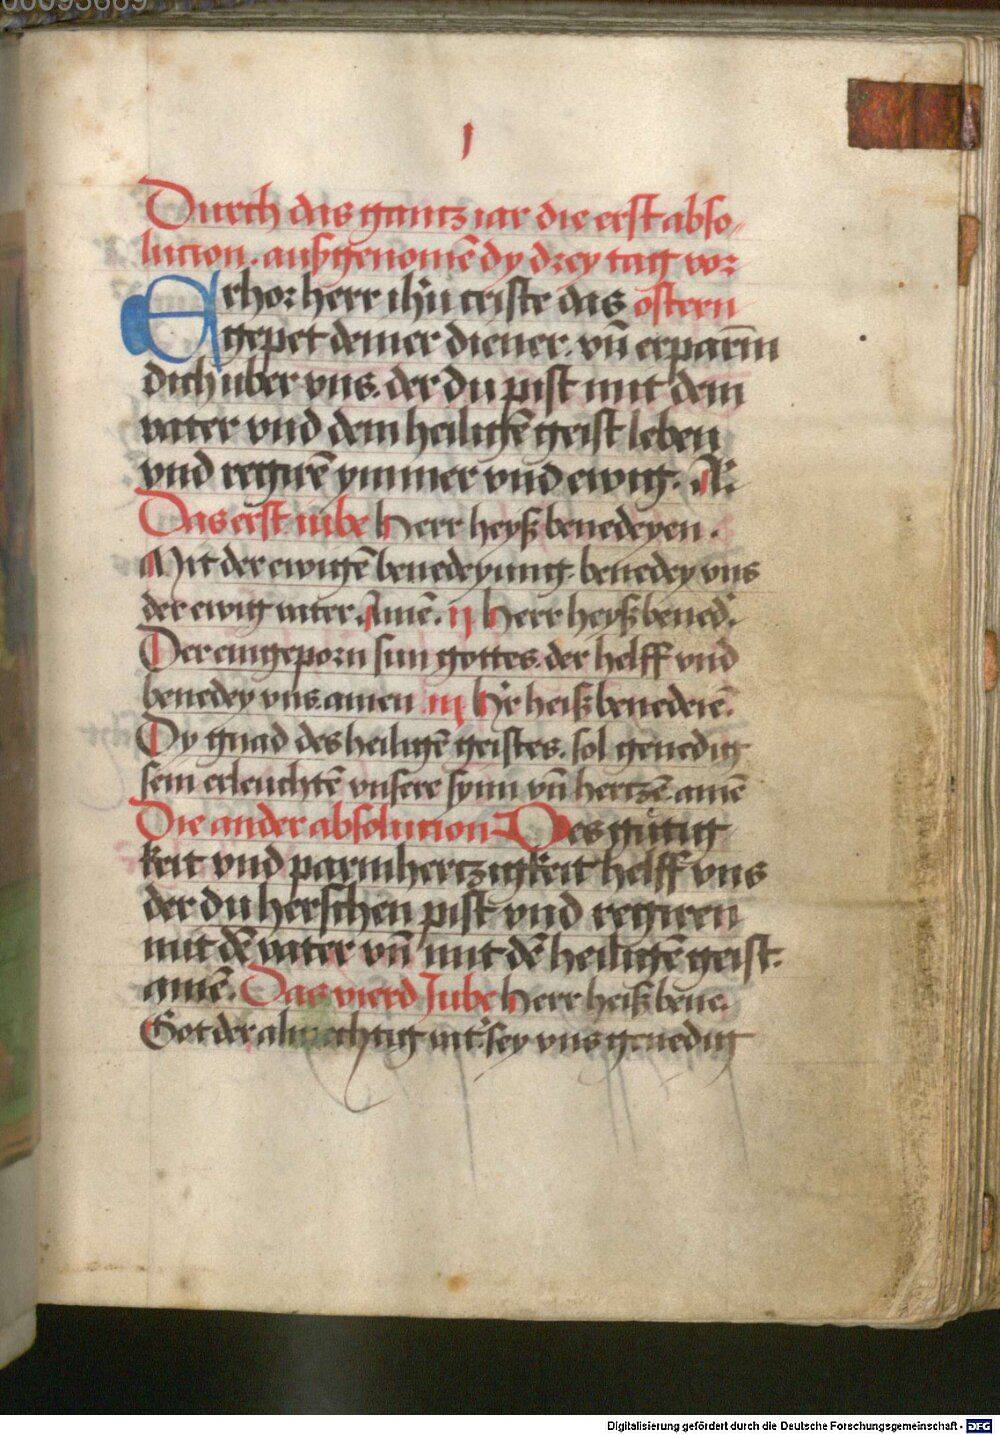 00093669
I
Durch das gantz iar die erst abso-
lucion. außgenomē dy drey tag vor
Erhor herr ihū criste das ostern
gepet deiner diener. vn̄ erparm̄
dich uber vns. der du pist mit dem
vater vnd dem heiligē geist leben
vnd regirē ymmer vnd ewig. A.
Das erst iube Herr heyß benedeyen.
Mit der ewigē benedeyung benedey vns
der ewig vater. Amē. ij Herr heyß bened.
Der eingeporn sun gottes. der helff vnd
benedey vns. amen iij Hr heiß benedeiē.
Dy gnad des heiligē geistes. sol genedig
sein erleuchtē vnsere synn vn̄ hertzē. amē
Die ander absolucion Des gütig
keit vnd parmhertzigkeit helff vns
der du herschen pist vnd regiren
mit dē vater vn̄ mit dē heiligē geist.
amē. Das vierd Jube Herr heiß bene.
Got der almechtig vat' sey vns genedig
Digitalisierung gefördert durch die Deutsche Forschungsgemeinschaft - DFG